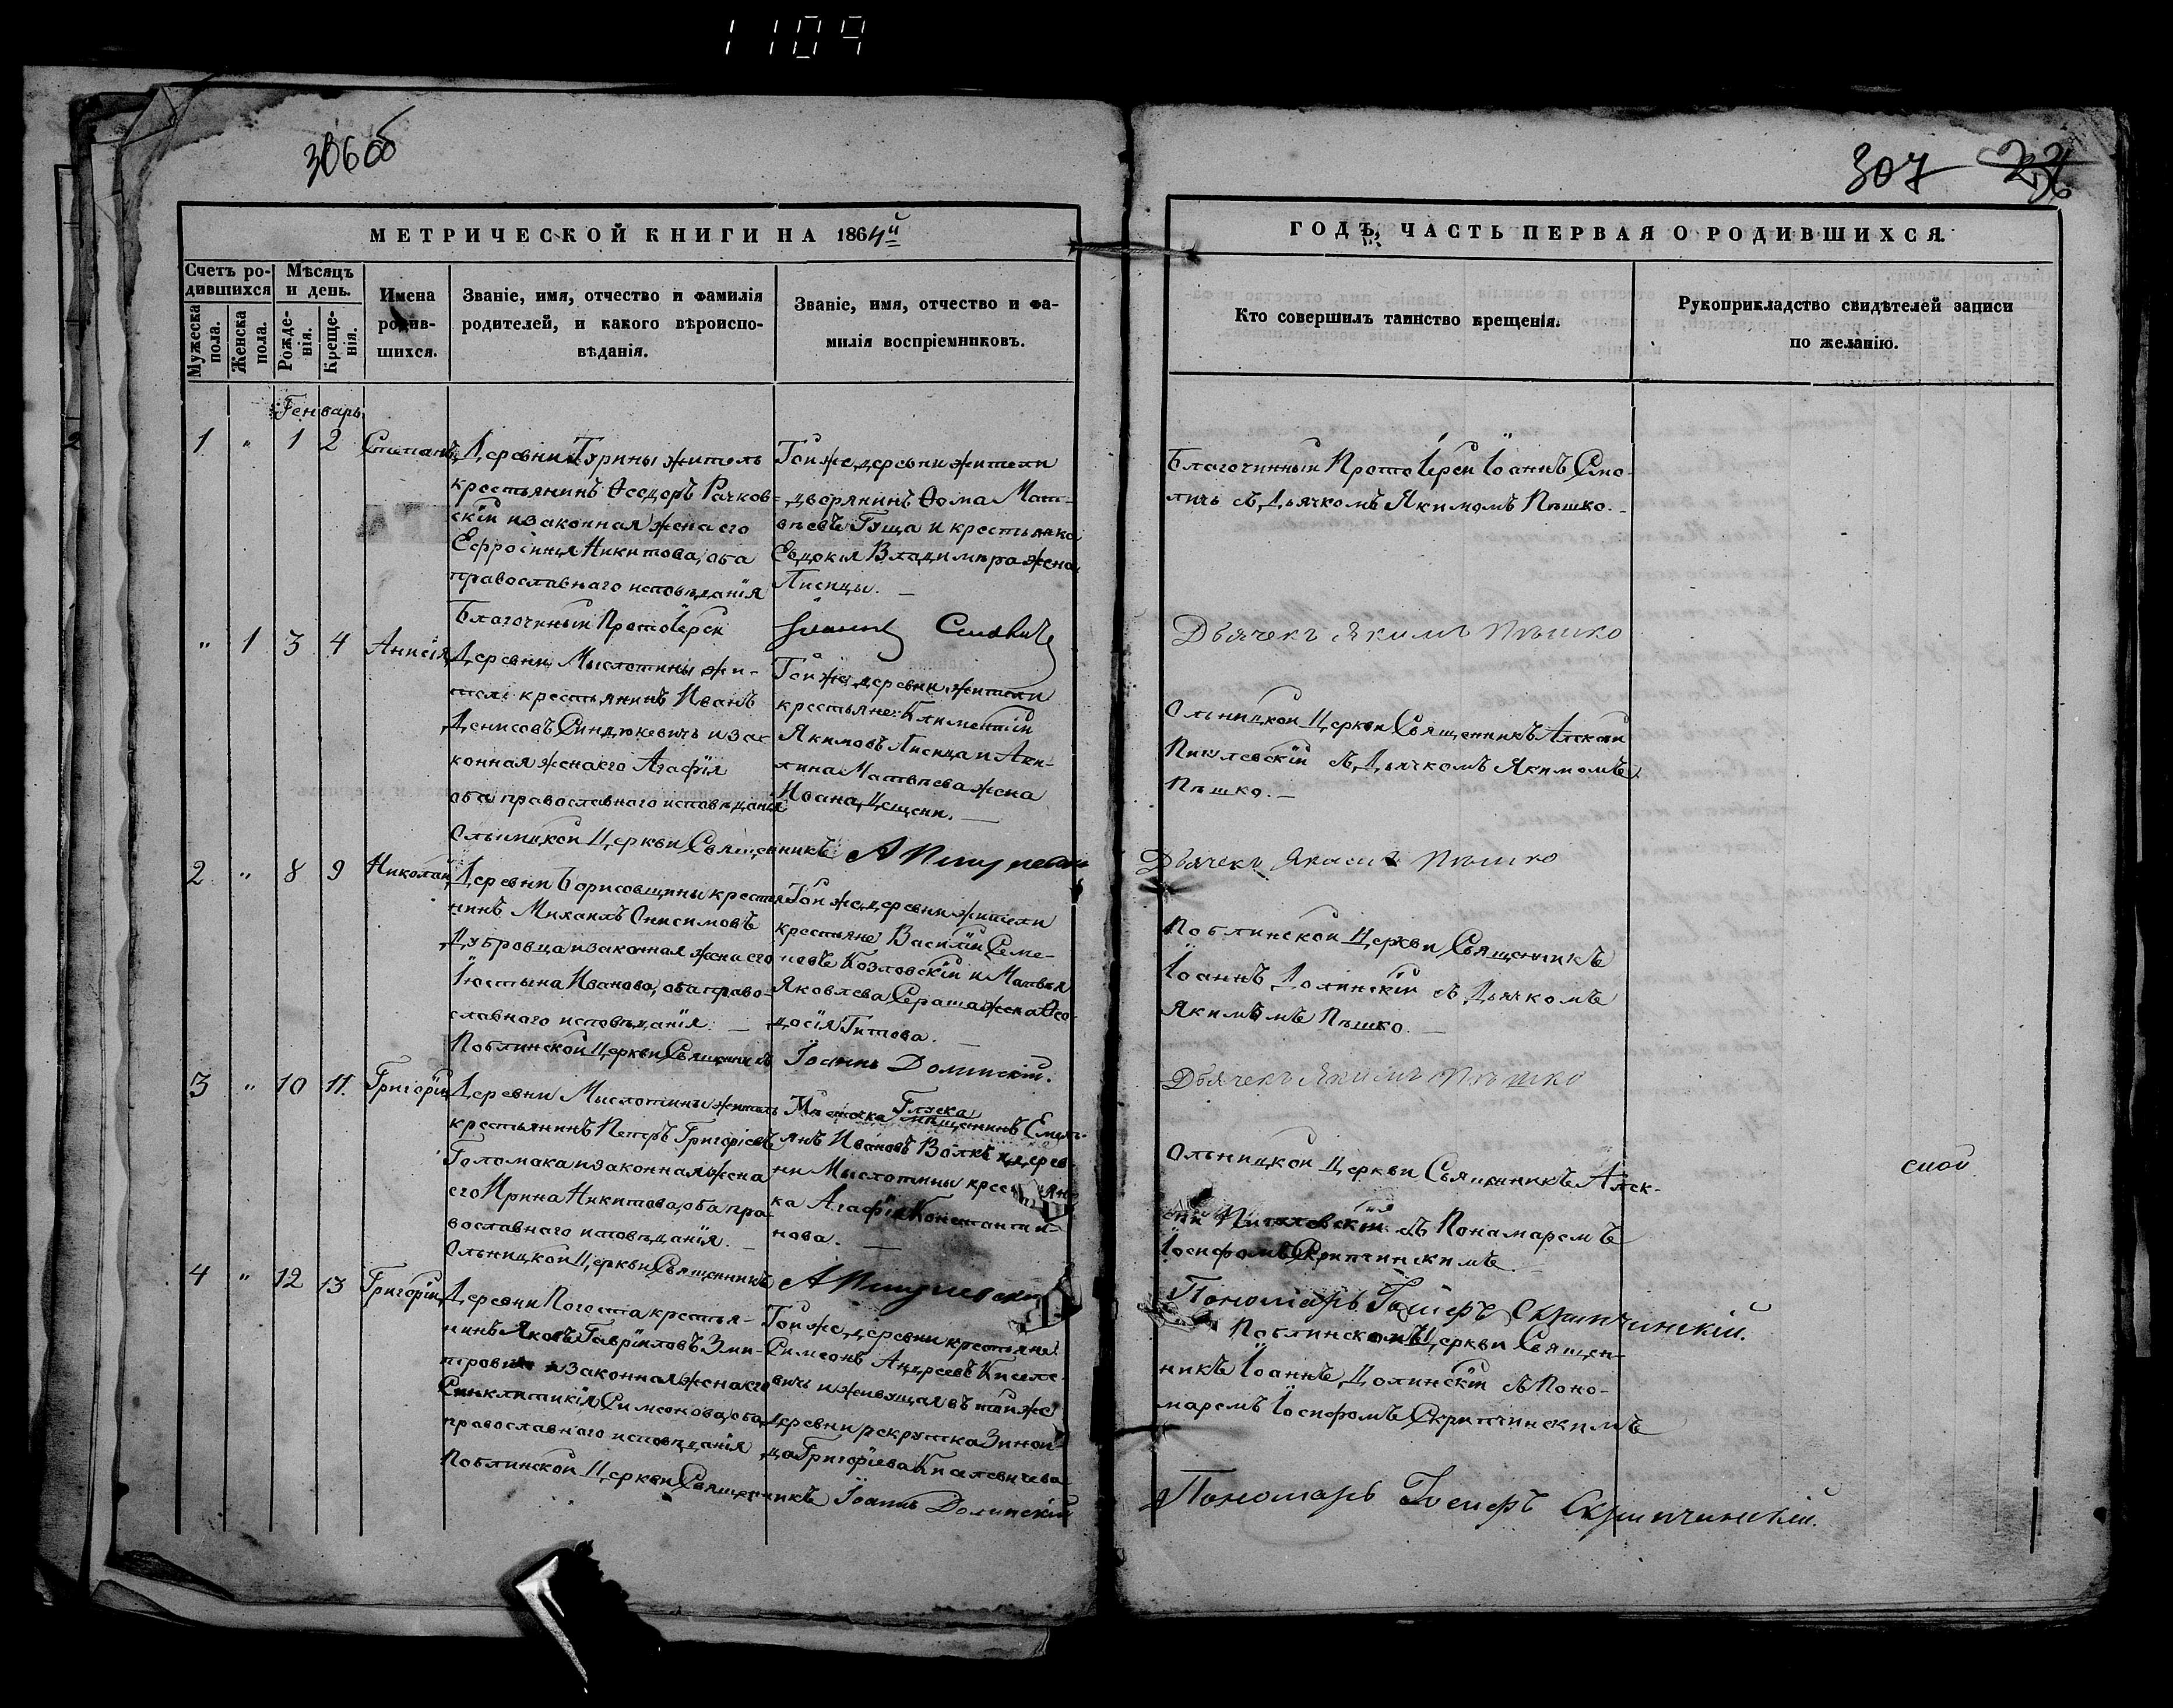 1109
306об
307
МЕТРИЧЕСКОЙ КНИГИ НА 1864й
Счетъ родившихся
Мѣсяцъ и день.
Мужеска пола.
Женска пола.
Рожденія.
Крещенія.
Имена родившихся.
Званіе, имя, отчество и фамилія родителей, и какого вѣроисповѣданія.
Званіе, имя, отчество и фамилія воспріемниковъ.
ГОДЪ, ЧАСТЬ ПЕРВАЯ О РОДИВШИХСЯ.
Кто совершилъ таинство крещенія.
Рукоприкладство свидѣтелей записи по желанію.
Генварь
1 " 1 2 Стефанъ
Деревни Турины житель
крестьянинъ Ѳеодоръ Рачков-
скій и законная жена его
Ефросинія Никитова, оба
православнаго исповѣданія
Тойже деревни жители
дворянинъ Ѳома Мат-
вѣевъ Гуща и крестьянка
Евдокія Владимира жена
Лисицы.
Благочинный Протоіерей Іоаннъ Смо-
личъ съ Дьячкомъ Якимомъ Пѣшко.
Благочинный Протоіерей Іоаннъ Смоличъ
Дьячекъ Якимъ Пѣшко
" 1 3 4 Анисія
Деревни Мыслотины жи-
тель крестьянинъ Иванъ
Денисовъ Синдюкевичъ и за-
конная жена его Агафія
оба православнаго исповѣданія
Тойже деревни жители
крестьяне: Климентій
Якимовъ Лисица и Аки-
лина Матвѣева жена
Ивана Цещени.
Ольницкой Церкви Священникъ Алексѣй
съ Дьячкомъ Якимомъ
Пѣшко.
Ольницкой Церкви Священникъ А
Дьячекъ Якимъ Пѣшко
2 " 8 9 Николай
Деревни Борисовщины крестья-
нинъ Михаилъ Онисимовъ
Дубровца и законная жена его
Іюстына Иванова, оба право-
славнаго исповѣданія.
Тойже деревни жители
крестьяне Василій Семе-
новъ Козловскій и Матвѣя
Яковлева Сераша жена Ѳео-
досія Титова.
Поблинской Церкви Священникъ
Іоаннъ Долинскій съ Дьячкомъ
Якимомъ Пѣшко.
Поблинской Церкви Священникъ Іоаннъ Долинскій.
Дьячекъ Якимъ Пѣшко
3 " 10 11. Григорій
Деревни Мыслотины житель
крестьянинъ Петръ Григоріевъ
Голомака и законная жена
его Ирина Никитова, оба пра-
вославнаго исповѣданія.
Мѣстечка Глуска мѣщанинъ Емель-
янъ Ивановъ Волкъ и дерев-
ни Мыслотины крестьян-
ка Агафія Константи-
нова.
Ольницкой Церкви Священникъ Алек-
сѣй съ Понамаремъ
Іосифомъ Скрипчинскимъ.
Ольницкой Церкви Священникъ А
Пономарь Іосифъ Скрипчинскій.
4 " 12 13 Григорій
Деревни Погоста крестья-
нинъ Яковъ Гавріиловъ Зми-
тровичъ и законная жена его
Синклитикія Симеонова, оба
православнаго исповѣданія
Тойже деревни крестьяне:
Симеонъ Андреевъ Киселе-
вичъ и живущая въ тойже
деревни рекрутка Зинои-
да Григоріева Киселевичева
Поблинской Церкви Священ-
никъ Іоаннъ Долинскій съ Поно-
маремъ Іосифомъ Скрипчинскимъ
Поблинской Церкви Священникъ Іоаннъ Долинскій
Пономарь Іосифъ Скрипчинскій.